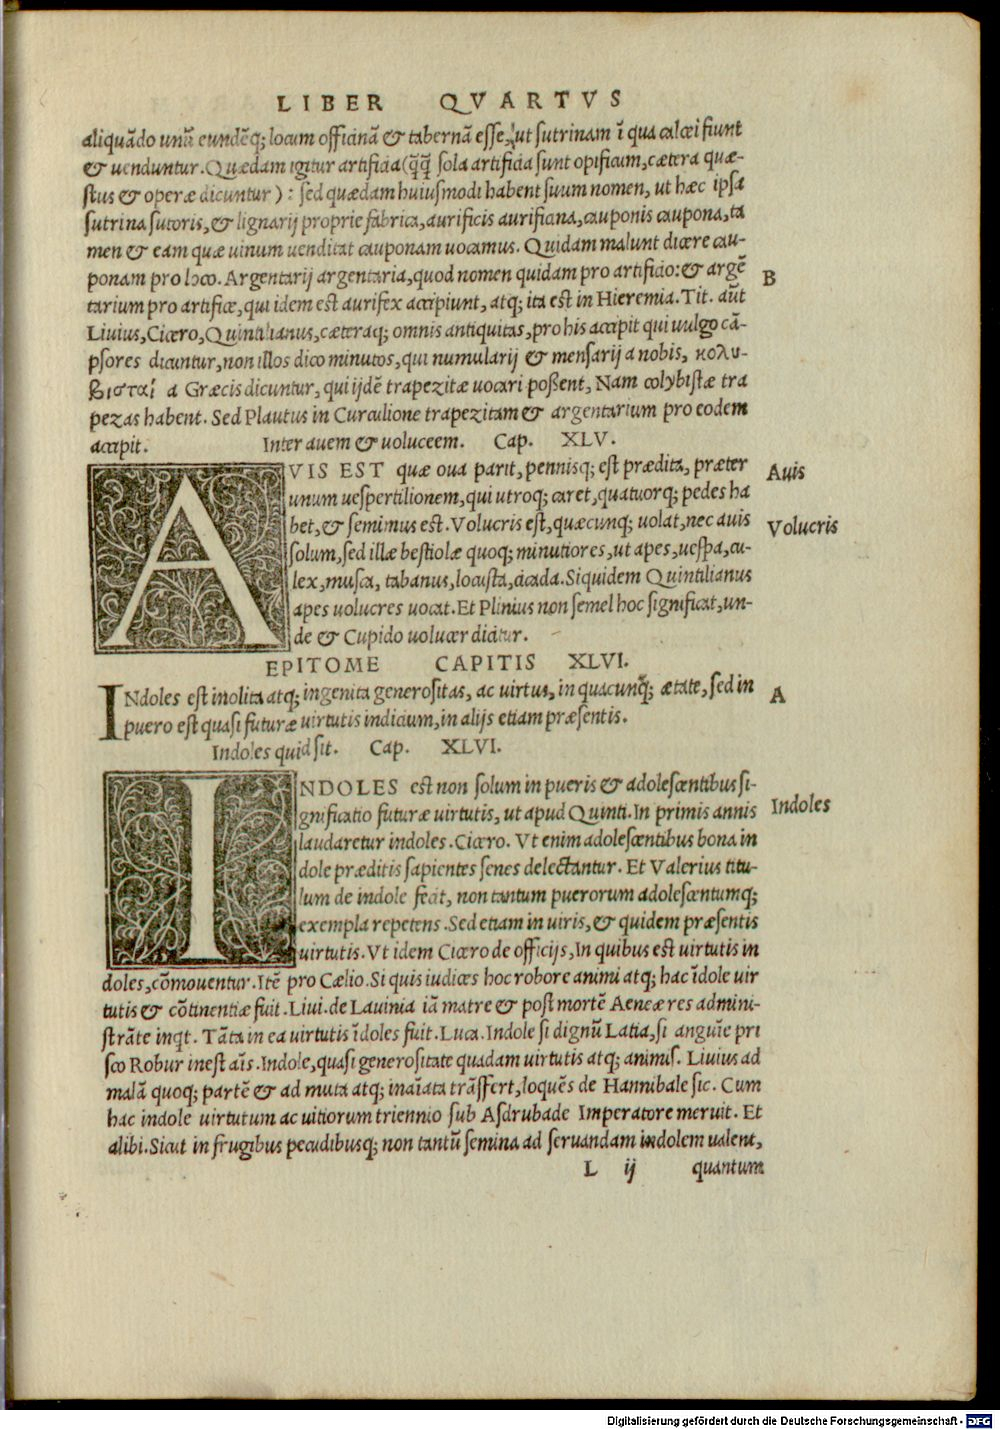 LIBER QVARTVS
aliquādo unū eundēq; locum officinā & tabernā esse, ut sutrinam ī qua calcei fiunt
& uenduntur. Quædam igitur artificia (q̄q̄ sola artificia sunt opificum, cætera quæ-
stus & operæ dicuntur): sed quædam huiusmodi habent suum nomen, ut hæc ipsa
sutrina sutoris, & lignarij proprie fabrica, aurificis aurificina, cauponis caupona, ta
men & eam quæ uinum uenditat cauponam uocamus. Quidam malunt dicere cau-
ponam pro loco. Argentarij argentaria, quod nomen quidam pro artificio: & argē
B
tarium pro artifice, qui idem est aurifex accipiunt, atq; ita est in Hieremia. Tit. aūt
Liuius, Cicero, Quintilianus, cæteraq; omnis antiquitas, pro his accipit qui uulgo cā-
psores dicuntur, non illos dico minutos, qui numularij & mensarij a nobis, κολυ-
βισταί a Græcis dicuntur, qui ijdē trapezitæ uocari poßent, Nam colybistæ tra
pezas habent. Sed Plautus in Curculione trapezitam & argentarium pro eodem
accipit. Inter auem & uolucrem. Cap. XLV.
AVIS EST quæ oua parit, pennisq; est prædita, præter
Auis
unum uespertilionem, qui utroq; caret, quatuorq; pedes ha
bet, & semimus est. Volucris est, quæcunq; uolat, nec auis
Volucris
solum, sed illæ bestiolæ quoq; minutiores, ut apes, uespa, cu-
lex, musca, tabanus, locusta, cicada. Siquidem Quintilianus
apes uolucres uocat. Et Plinius non semel hoc significat, un-
de & Cupido uolucer dicitur.
EPITOME CAPITIS XLVI.
INdoles est inolita atq; ingenita generositas, ac uirtus, in quacunq̄; ætate, sed in
A
puero est quasi futuræ uirtutis indicium, in alijs etiam præsentis.
Indoles quid sit. Cap. XLVI.
INDOLES est non solum in pueris & adolescentibus si-
gnificatio futuræ uirtutis, ut apud Quinti. In primis annis
Indoles
laudaretur indoles. Cicero. Vt enim adolescentibus bona in
dole præditis sapientes senes delectantur. Et Valerius titu-
lum de indole fecit, non tantum puerorum adolescentumq;
exempla repetens. Sed etiam in uiris, & quidem præsentis
uirtutis. Vt idem Cicero de officijs, In quibus est uirtutis in
doles, cōmouentur. Itē pro Cælio. Si quis iudices hoc robore animi atq; hac īdole uir
tutis & cōtinentiæ fuit. Liui. de Lauinia iā matre & post mortē Aeneæ res admini-
strāte inqt. Tāta in ea uirtutis īdoles fuit. Luca. Indole si dignū Latia, si anguīe pri
sco Robur inest aīs. Indole, quasi generositate quadam uirtutis atq; animis. Liuius ad
malā quoq; partē & ad muta atq; inaīata trāsfert, loquēs de Hannibale sic. Cum
hac indole uirtutum ac uitiorum triennio sub Asdrubade Imperatore meruit. Et
alibi. Sicut in frugibus pecudibusq; non tantū semina ad seruandam indolem ualent,
L ij quantum
Digitalisierung gefördert durch die Deutsche Forschungsgemeinschaft - DFG